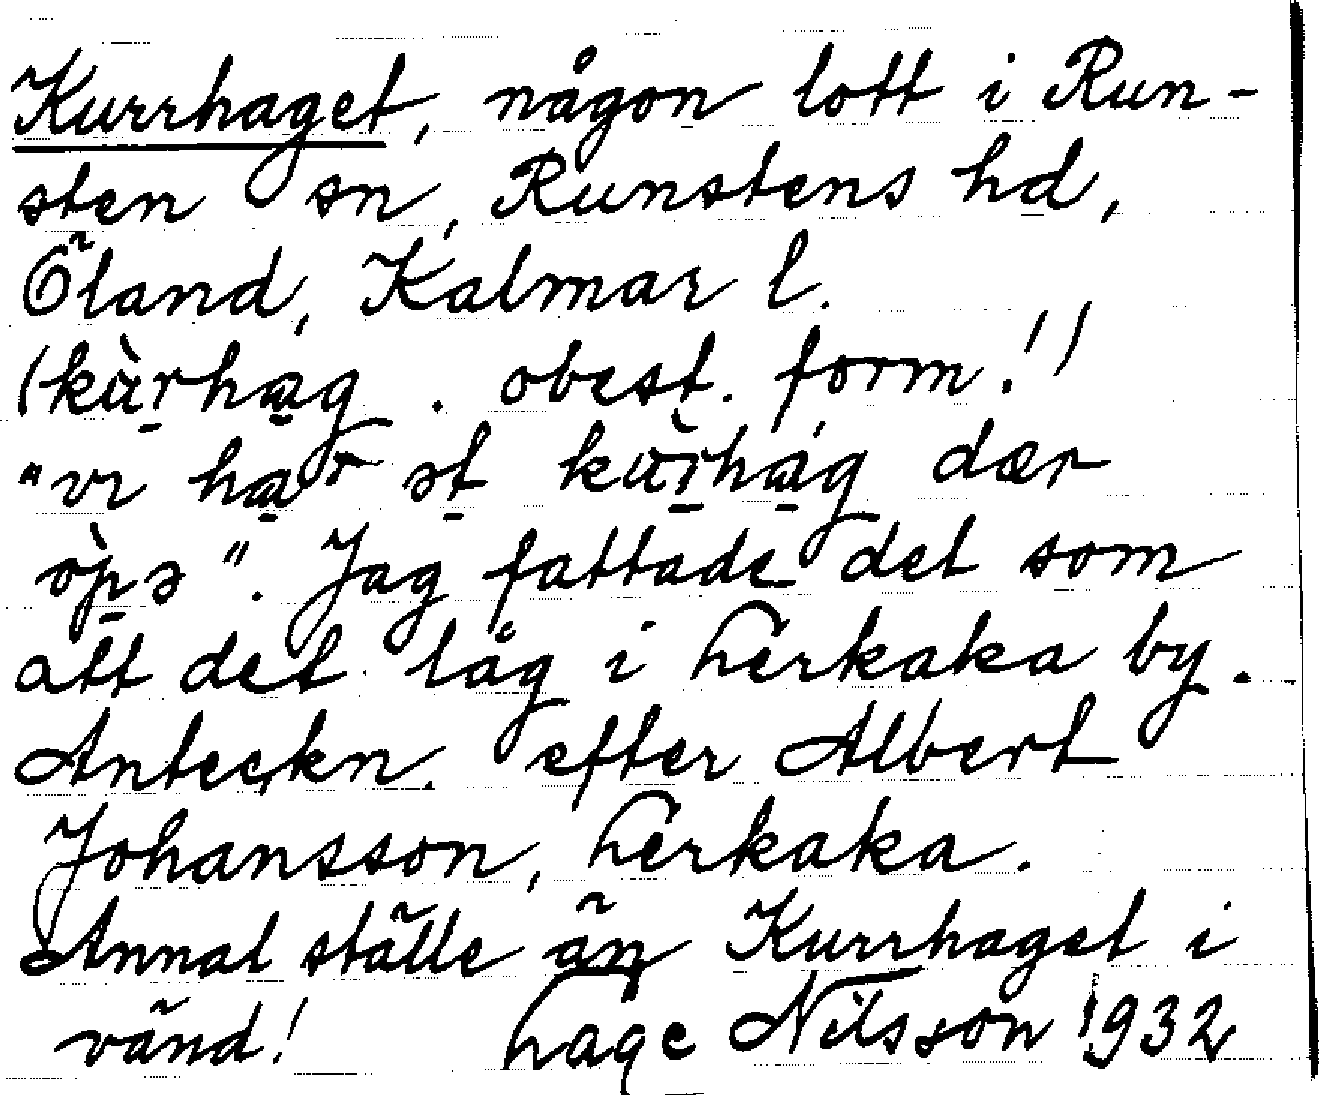 Kurrhaget, någon lott i Run-
sten sn, Runstens hd,
Öland, Kalmar l.
(kùrhag . obest. form!)
"vi har ət kùrhag dær
òpə". Jag fattade det som
att det låg i Lerkaka by.
Anteckn. efter Albert
Johansson, Lerkaka.
Annat ställe än Kurrhaget i
vänd! Lage Nilsson 1932